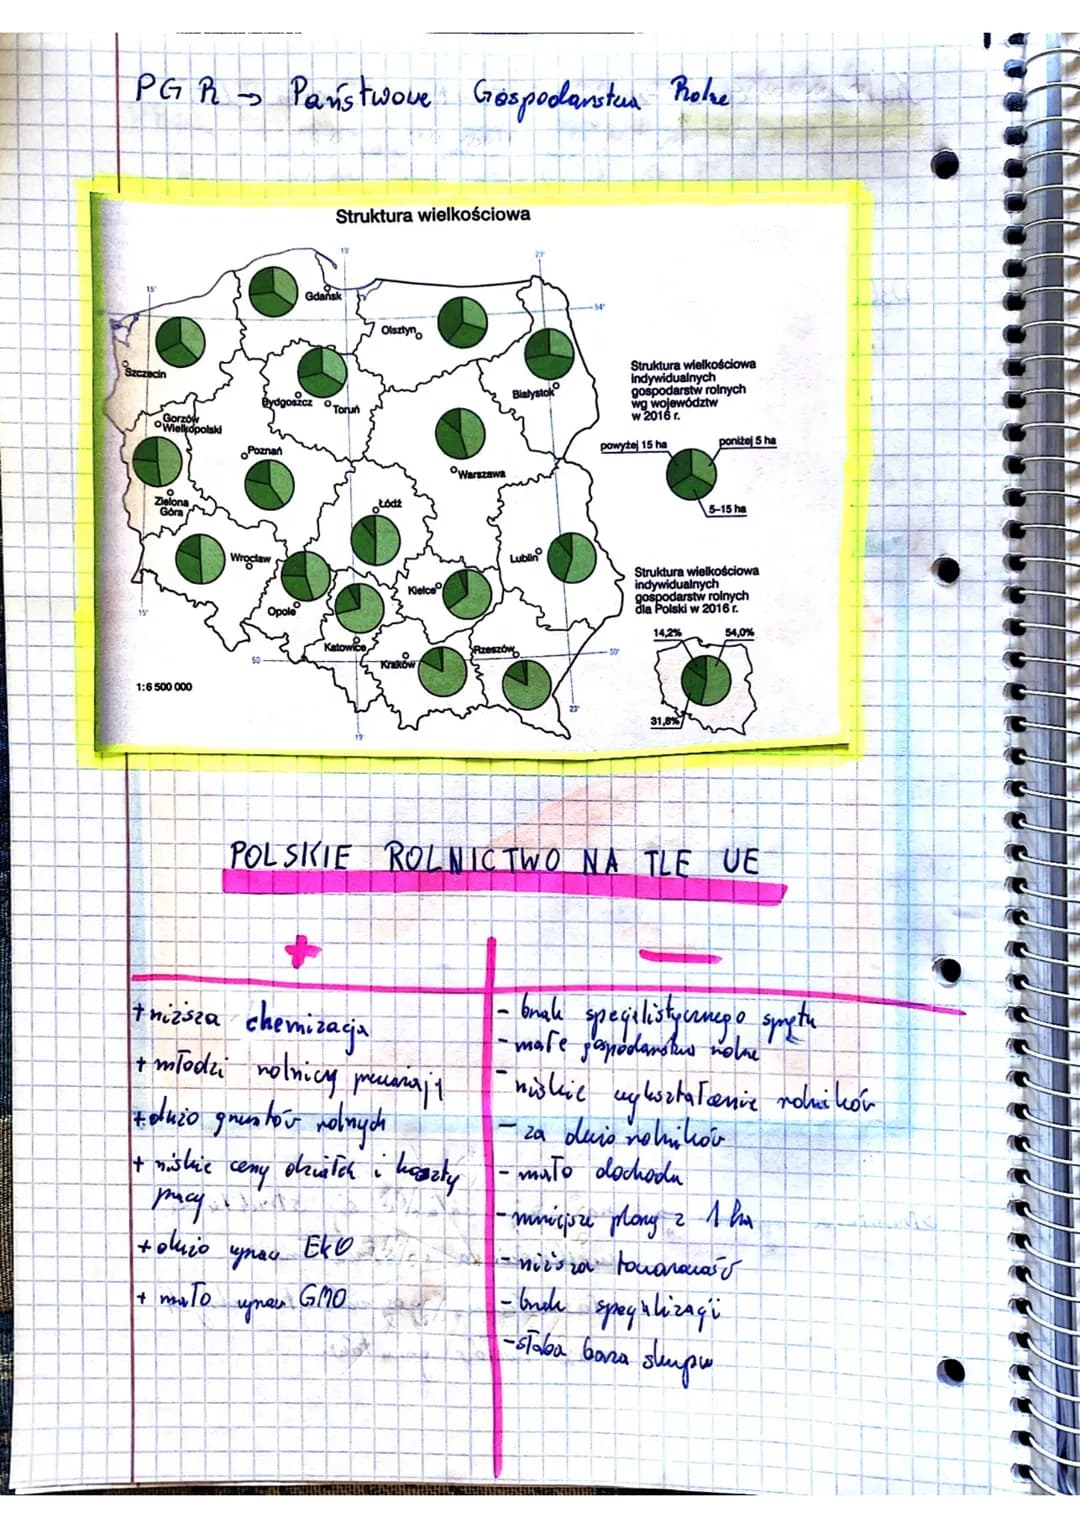 PGR → Państwowe Gospodarstwa Rolne
Struktura wielkościowa
19°
23°
15°
54°
Gdańsk
Olsztyn
Szczecin
Białystok
Bydgoszcz
Toruń
Gorzów
Wielkopolski
Poznań
Warszawa
Zielona
Góra
Łódź
Wrocław
Lublin
Kielce
Opole
Katowice
Kraków
Rzeszów
15°
50°
50°
19°
23°
1:6 500 000
Struktura wielkościowa
indywidualnych
gospodarstw rolnych
wg województw
w 2016 r.
powyżej 15 ha
poniżej 5 ha
5–15 ha
Struktura wielkościowa
indywidualnych
gospodarstw rolnych
dla Polski w 2016 r.
14,2%
54,0%
31,8%
POLSKIE ROLNICTWO NA TLE UE
+
+ niższa chemizacja
+ młodzi rolnicy przeważają
+ dużo gruntów rolnych
+ niskie ceny działek i koszty
pracy
+ dużo upraw EKO
+ mało upraw GMO
—
- brak specjalistycznego sprzętu
- małe gospodarstwa rolne
- niskie wykształcenie rolników
- za dużo rolników
- mało dochodu
- mniejsze plony z 1 ha
- niższa towarowość
- brak specjalizacji
- słaba baza skupu